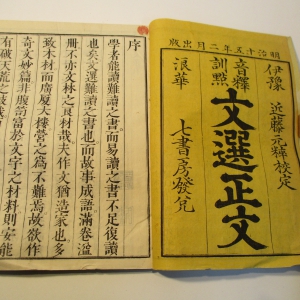 明治十五年二月出版
伊豫 近藤元粹校定
音釋
訓點
文選正文
浪華 七書房發兌
序
學者能讀難讀之書而易讀之書不足復讀
也矣文選難讀之書也而故事成語滿卷溢
冊不亦文林之良材哉夫作文猶造家也多
致木材而廣廈大樓營之爲不難焉故欲作
奇文妙篇非腹笥富於文字之材料則安能